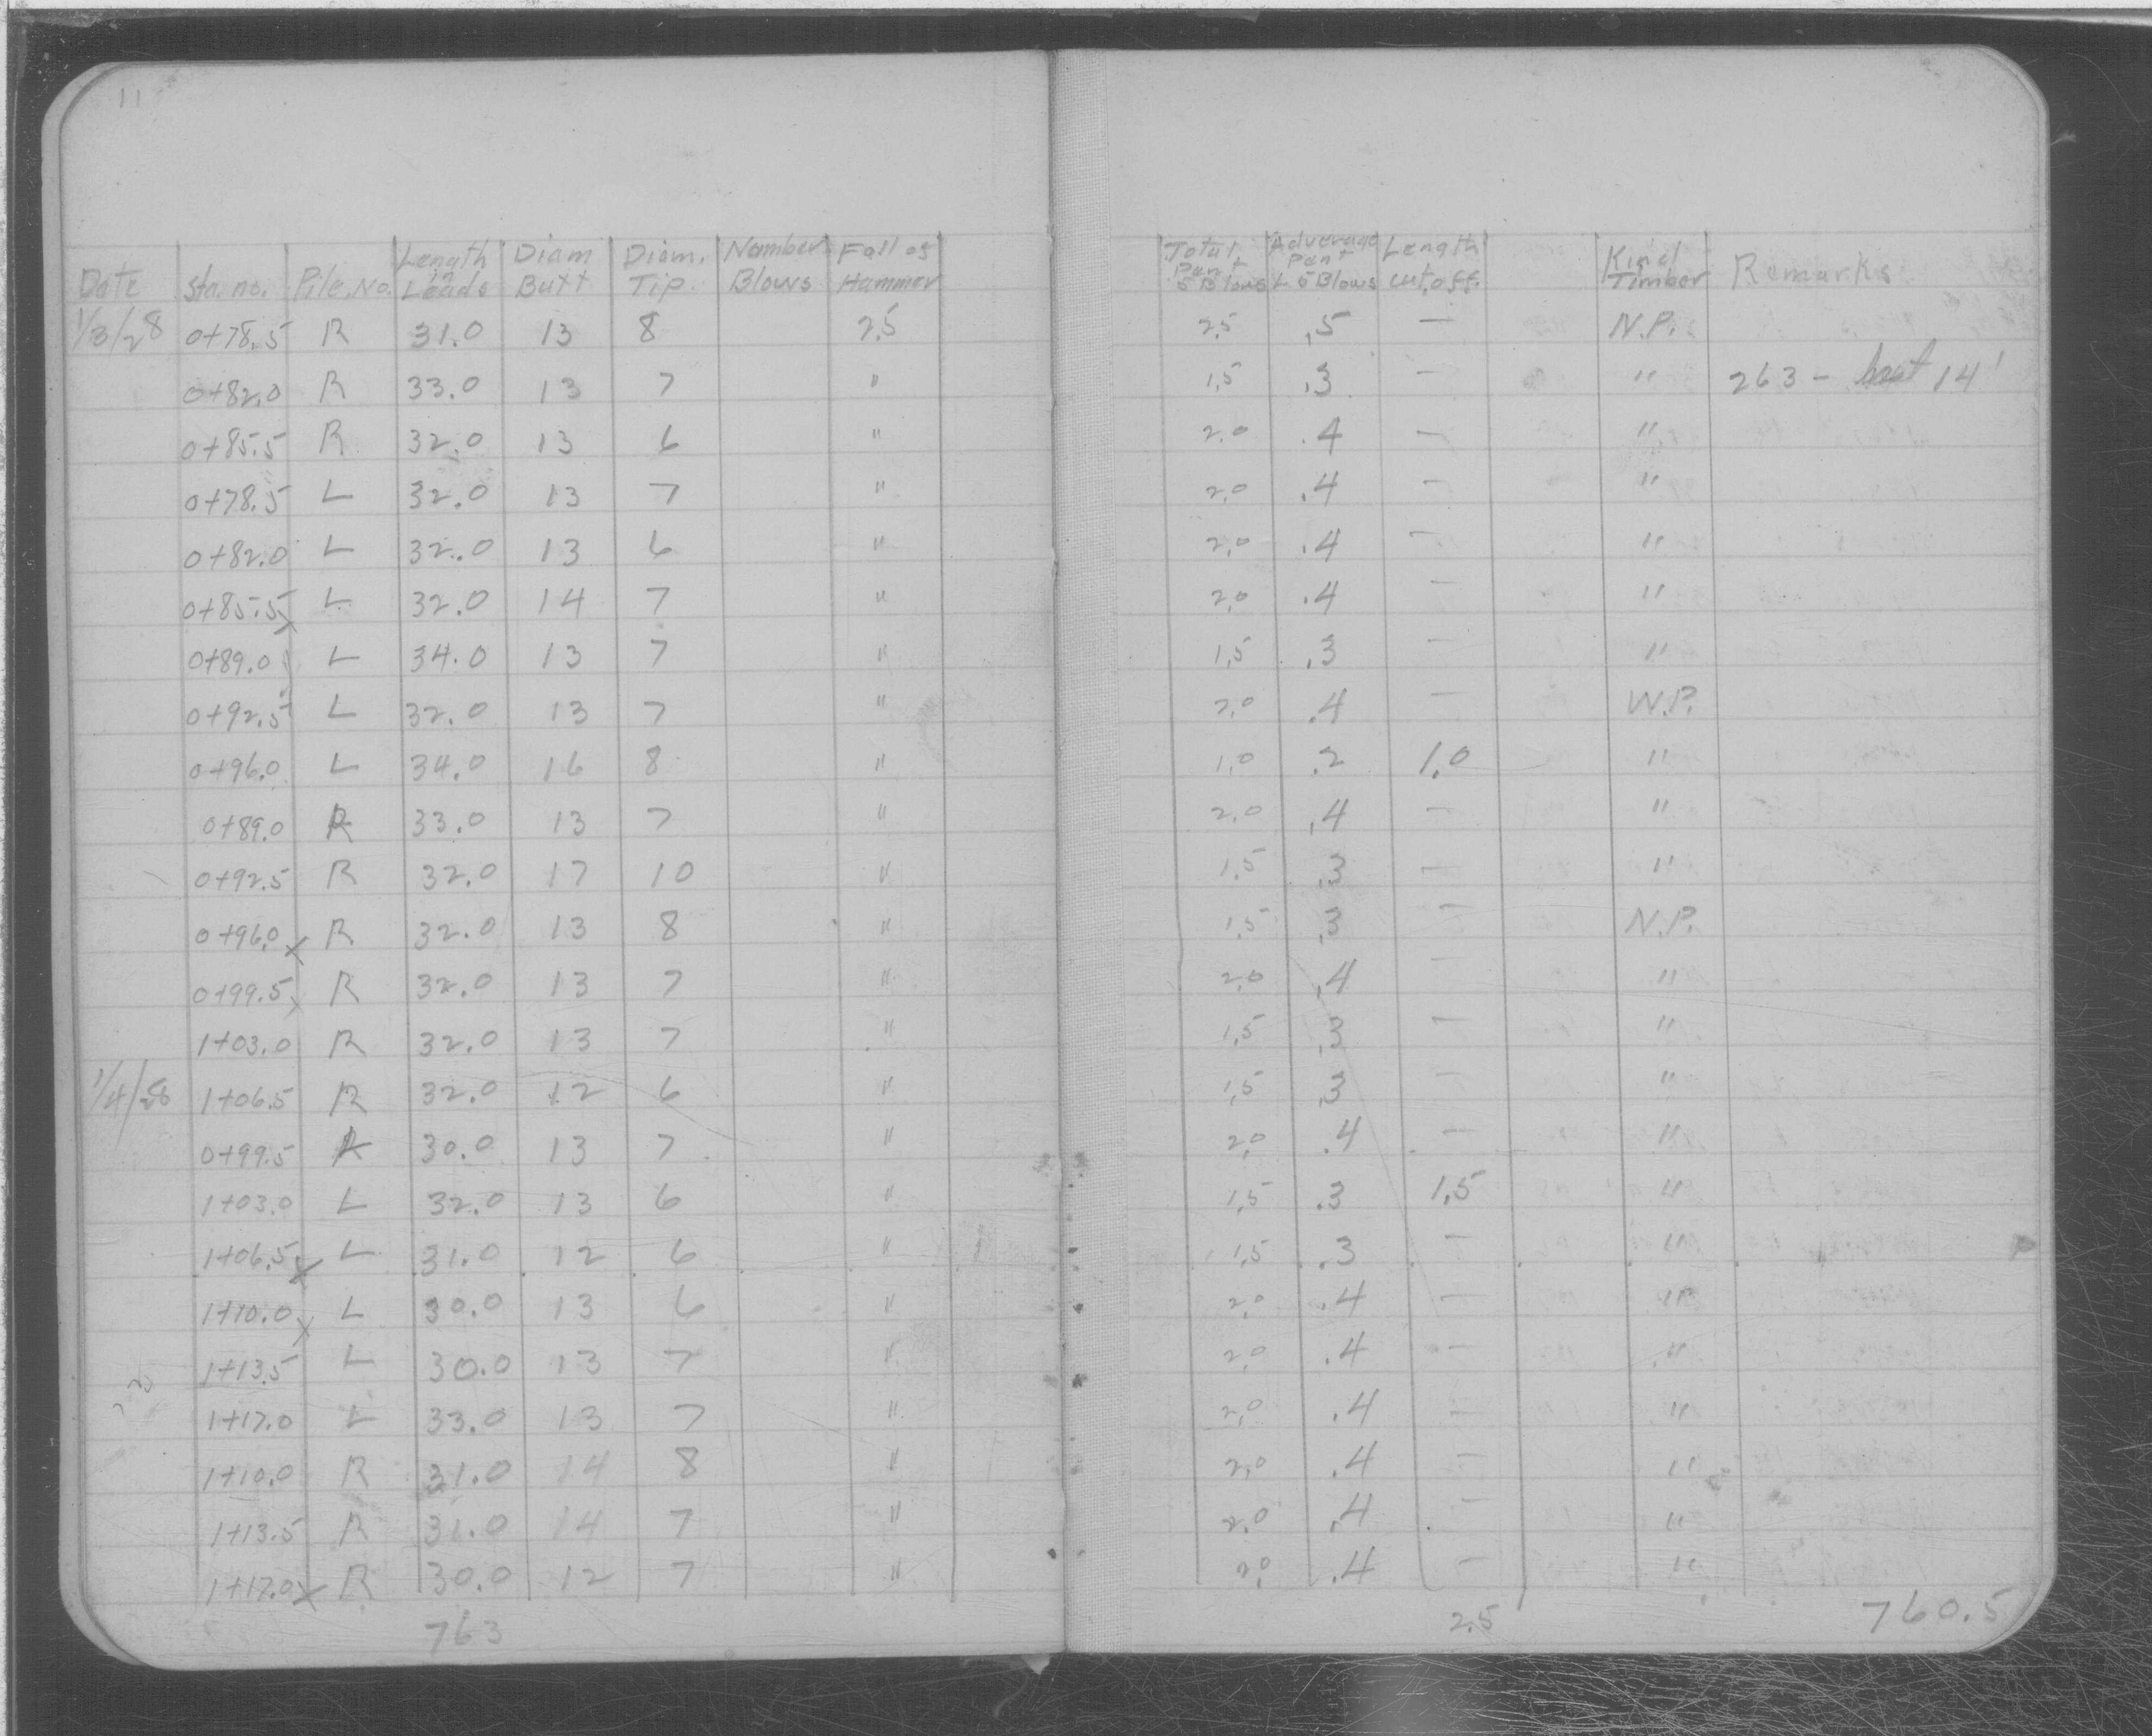 11
Date Sta. no. Pile. No. Length in Leads Diam Butt Diam. Tip. Number Blows Fall of Hammer Total Pent 5 Blows Adverage Pent L 5 Blows Length cut off. Kind Timber Remarks
1/3/28 0+78.5 R 31.0 13 8 25 2.5 .5 — N.P.
0+82.0 R 33.0 13 7 " 1.5 .3 — " 263 - 14'
0+85.5 R 32.0 13 6 " 2.0 .4 — "
0+78.5 L 32.0 13 7 " 2.0 .4 — "
0+82.0 L 32.0 13 6 " 2.0 .4 — "
0+85.5x L 32.0 14 7 " 2.0 .4 — "
0+89.0 L 34.0 13 7 " 1.5 .3 — "
0+92.5 L 32.0 13 7 " 2.0 .4 — W.P.
0+96.0 L 34.0 16 8 " 1.0 .2 1.0 "
0+89.0 R 33.0 13 7 " 2.0 .4 — "
0+92.5 R 32.0 17 10 " 1.5 .3 — "
0+96.0x R 32.0 13 8 " 1.5 .3 — N.P.
0+99.5x R 32.0 13 7 " 2.0 .4 — "
1+03.0 R 32.0 13 7 " 1.5 .3 — "
1/4/28 1+06.5 R 32.0 12 6 " 1.5 .3 — "
0+99.5 30.0 13 7 " 2.0 .4 — "
1+03.0 L 32.0 13 6 " 1.5 .3 1.5 "
1+06.5x L 31.0 12 6 " 1.5 .3 — "
1+10.0x L 30.0 13 6 " 2.0 .4 — "
1+13.5 L 30.0 13 7 " 2.0 .4 — "
1+17.0 L 33.0 13 7 " 2.0 .4 — "
1+10.0 R 31.0 14 8 " 2.0 .4 — "
1+13.5 R 31.0 14 7 " 2.0 .4 — "
1+17.0x R 30.0 12 7 " 2.0 .4 — "
763 2.5 760.5